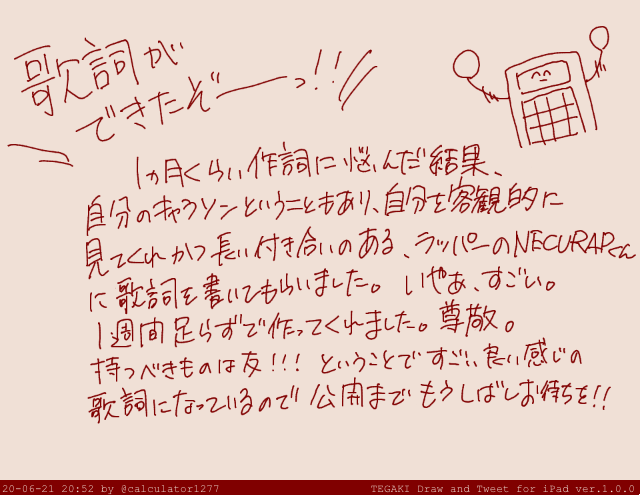 歌詞が
できたぞーっ!!
1ヵ月くらい作詞に悩んだ結果、
自分のキャラソンということもあり、自分を客観的に
見てくれかつ長い付き合いのある、ラッパーのNECURAPくん
に歌詞を書いてもらいました。いやぁ、すごい。
1週間足らずで作ってくれました。尊敬。
持つべきものは友!!!ということですごい良い感じの
歌詞になっているので公開までもうしばしお待ちを!!
20-06-21 20:52 by @calculator1277
TEGAKI Draw and Tweet for iPad ver.1.0.0